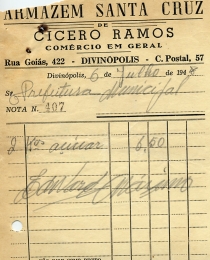 ARMAZEM SANTA CRUZ
DE
CICERO RAMOS
COMÉRCIO EM GERAL
Rua Goiás, 422 - DIVINÓPOLIS - C. Postal, 57
Divinópolis, 6 de Julho de 194
Sr. Prefeitura Municipal
NOTA N. 107
2 Kgs açucar 6,50